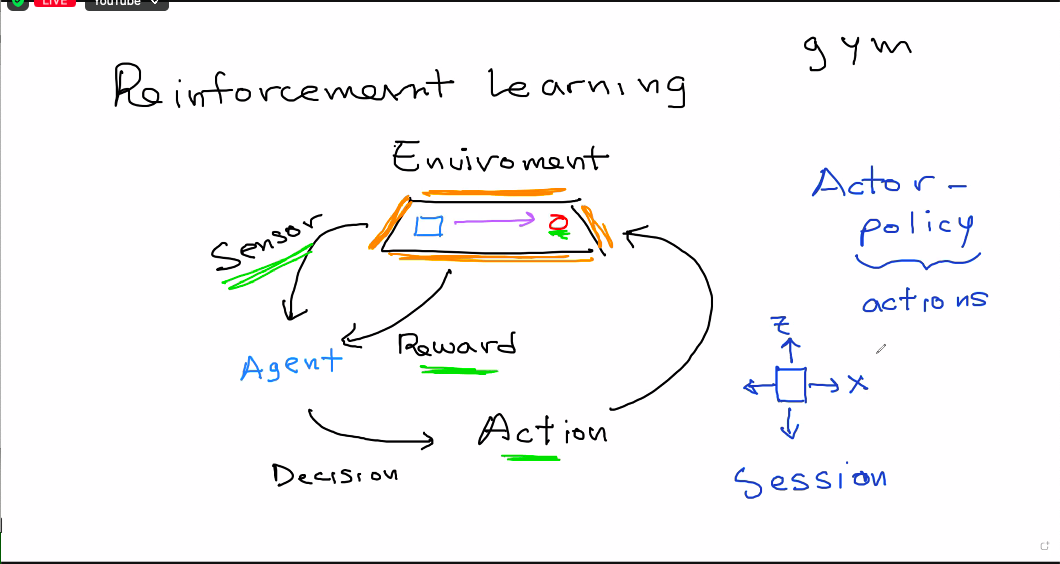 LIVE
YouTube
gym
Reinforcememnt Learning
Enviroment
Sensor
Agent
Reward
Action
Decision
Actor-
policy
actions
Z
X
Session